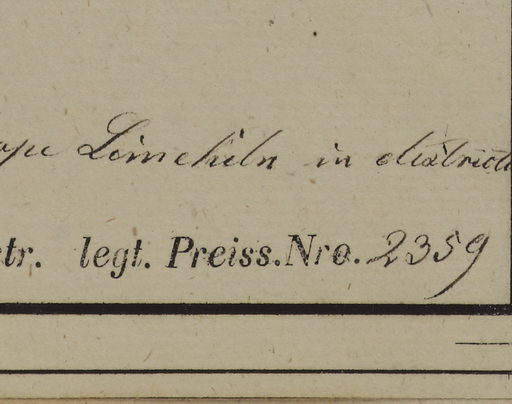 Limekiln in district
tr. legt. Preiss. Nro. 2359